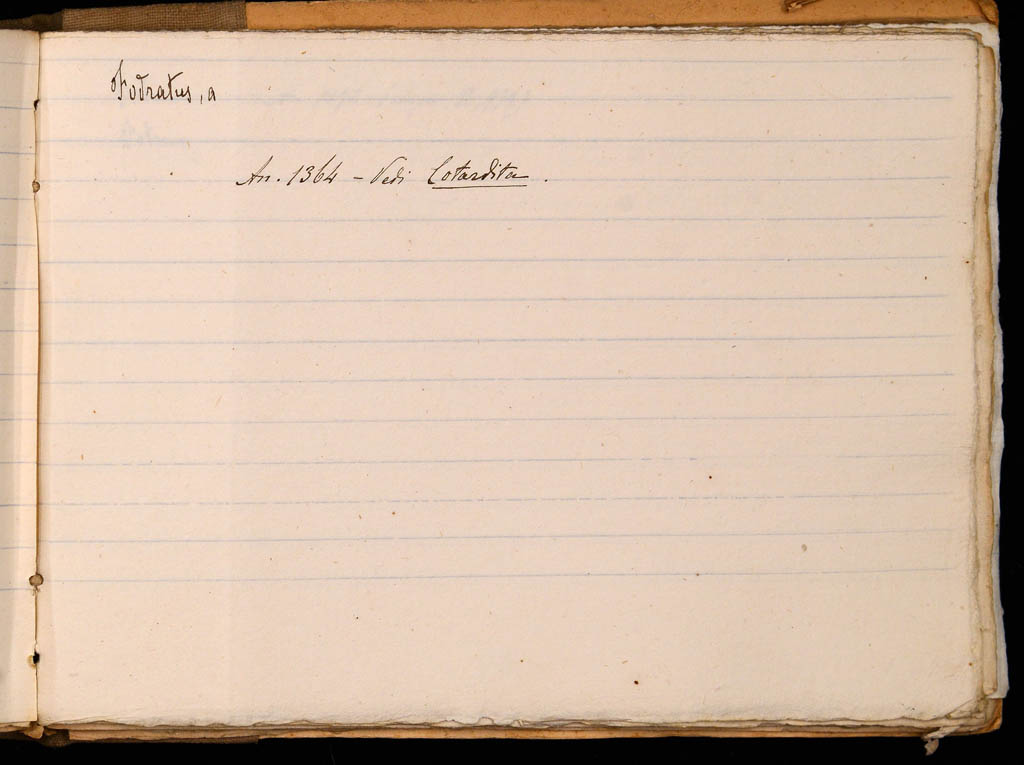 Fodratus, a
An. 1364 - Vedi Cotardita.